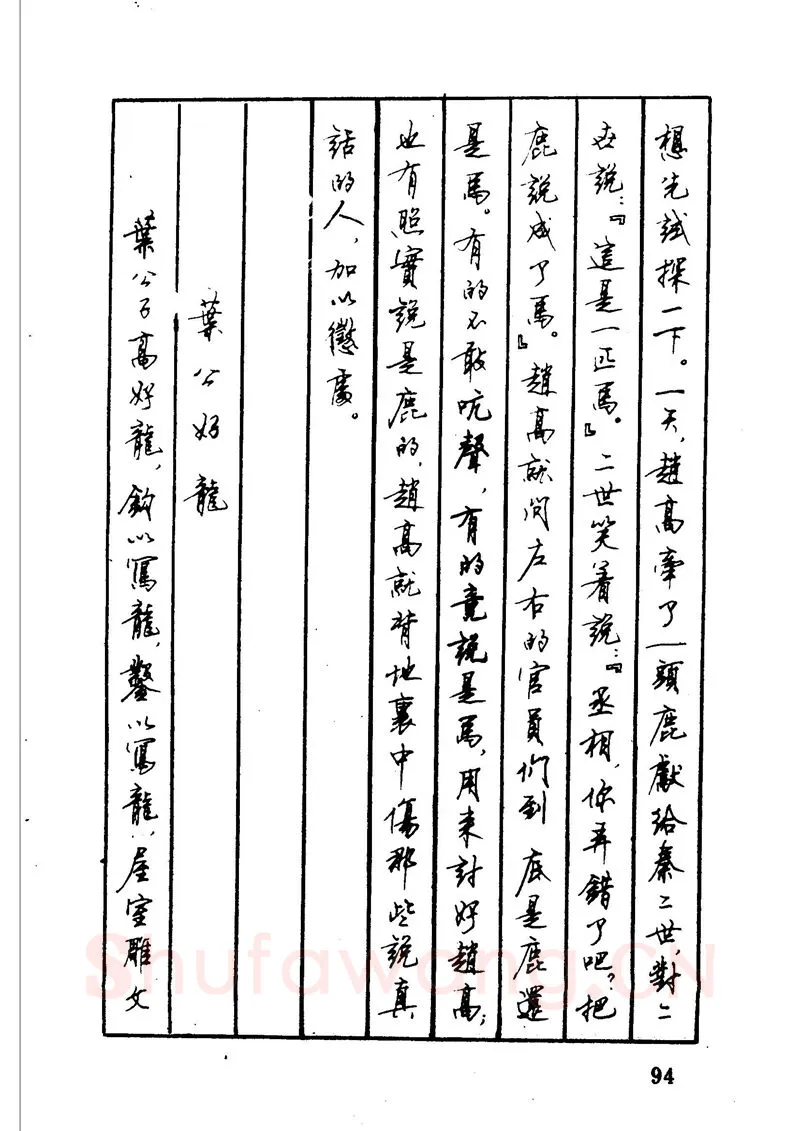 想先試探一下。一天，趙高牽了一頭鹿獻給秦二世，對二
世說：『這是一匹馬。』二世笑着說：『丞相，你弄錯了吧？把
鹿說成了馬。』趙高就问左右的官員們到底是鹿還
是馬。有的不敢吭聲，有的竟說是馬，用来討好趙高；
也有照實說是鹿的，趙高就背地裏中傷那些說真
話的人，加以懲處。
葉公好龍
葉公子高好龍，鉤以寫龍，鑿以寫龍，屋室雕文
94
Shufawang.CN